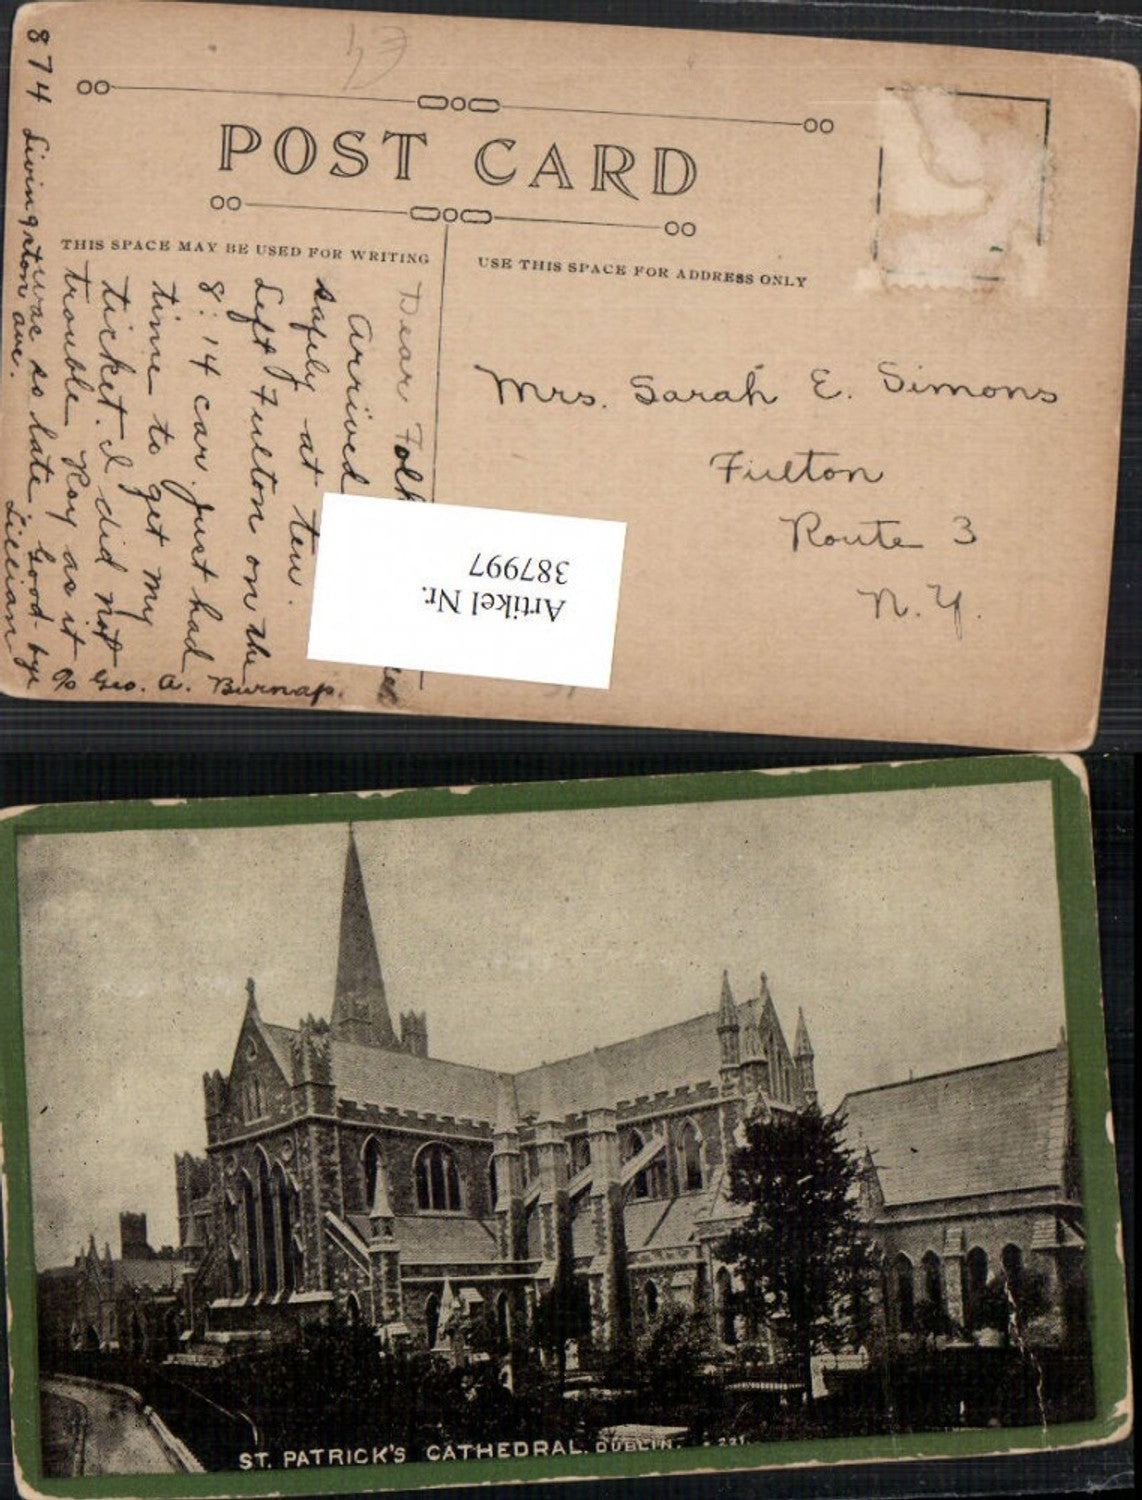 POST CARD
THIS SPACE MAY BE USED FOR WRITING
USE THIS SPACE FOR ADDRESS ONLY
Dear Folk
Arrived
safely at ten.
Left Fulton on the
8:14 car. Just had
time to get my
ticket. I did not
trouble Roy as it
was so late. Good-bye
Lillian
℅ Geo. A. Burnap.
874 Livingston ave.
Mrs. Sarah E. Simons
Fulton
Route 3
N.Y.
Artikel Nr.
387997
ST. PATRICK'S CATHEDRAL. DUBLIN. 221